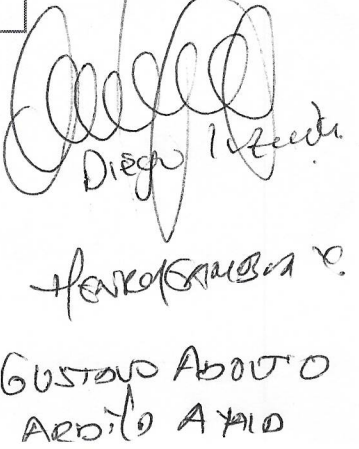 Diego
HENRY GAMBOA
GUSTAVO ADOLFO
ARDILA AYALA